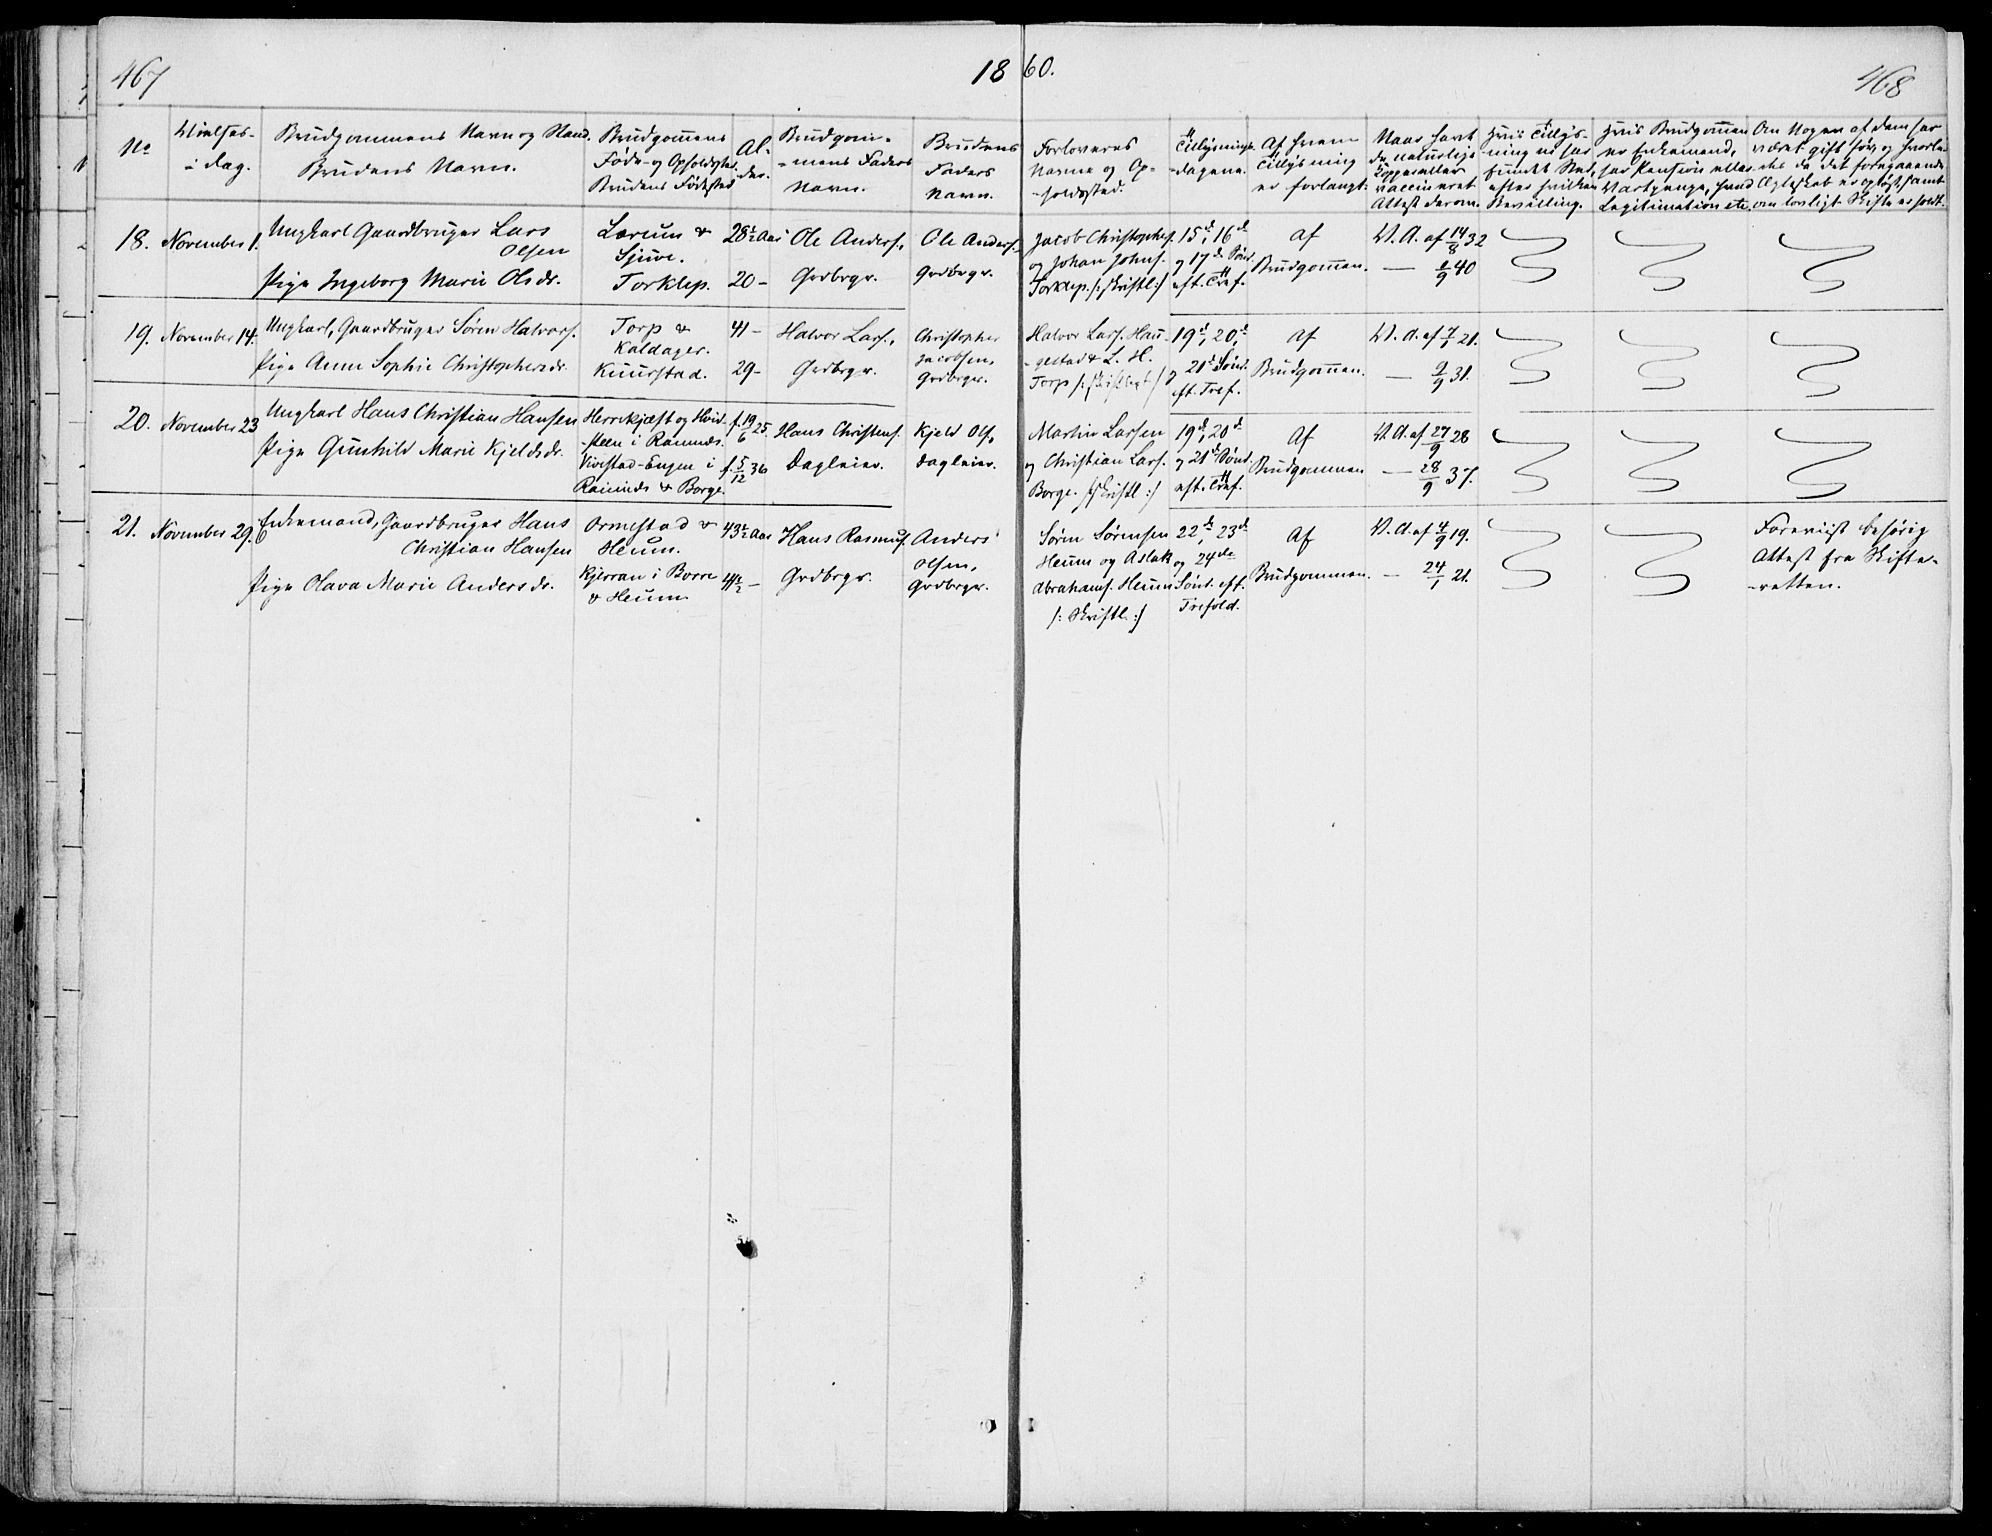 467
1860.
468
No
Vielses-
-dag.
Brudgommens Navn og Stand.
Brudens Navn.
Brudgomens
Føde- og Opholdssted.
Brudens Fødested
Al-
der.
Brudgom-
-mens Faders
Navn.
Brudens
Faders
Navn.
Forloveres
Navne og Op-
-holdssted.
Tillysnings-
-dagene.
Af hvem
Tillysning
er forlangt.
Naar havt
de naturlige
Kopper eller
vaccineret
Attest derom.
Hvis Tillys-
-ning ei har
fundet Sted,
efter hvilken
Bevilling.
Hvis Brudgomen
er Enkemand,
har Pension eller
Vartpenge, hvad
Legitimation etc.
Om Nogen af dem har
været gift før, og hvorle-
-des da det foregaaende
Ægteskab er opløst, samt
om lovligt Skifte er holdt.
18.
November 1.
Ungkarl Gaardbruger Lars
Olsen
Pige Ingeborg Marie Olsdr.
Lærum &
Sjuve.
Torklep.
28½ Aar
20 -
Ole Anders.,
Grdbrgr.
Ole Anders.
Grdbrgr.
Jacob Christophers.
og Johan Johns.
Torklep. /: Skriftl :/
15de, 16de
og 17de Sønd.
eft. Tref.
Af
Brudgommen.
V. A. af 14/8 32
— 1/9 40
19.
November 14.
Ungkarl, Gaardbruger Søren Halvors.
Pige Anne Sophie Christophersdr.
Torp &
Kaldager.
Kuurstad.
41 -
29 -
Halvor Lars.,
Grdbrgr.
Christopher
Jacobsen,
Grdbrgr.
Halvor Lars. Hau-
-gestad & L. H.
Torp /: Skriftligt :/
19de, 20de
og 21de Sønd.
eft. Tref.
Af
Brudgommen.
V. A. af 7/1 21.
— 9/9 31.
20.
November 23
Ungkarl Hans Christian Hansen
Pige Gunhild Marie Kjeldsdr.
Herrekjæst og Hvid-
-steen i Ramnæs.
Vivestad-Engen i
Ramnæs & Borge.
f. 19/6 25.
f. 5/12 36
Hans Christens.
Dagleier.
Kjeld Ols.,
Dagleier.
Martin Larsen
og Christian Lars.
Borge. /: Skriftl :/
19de, 20de
og 21de Sønd.
eft. Tref.
Af
Brudgommen
V. A. af 27/9 28
— 28/9 37.
21.
November 29.
Enkemand, Gaardbruger Hans
Christian Hansen
Pige Olava Marie Andersdr.
Ormestad &
Heum.
Kjerran i Borre
& Heum
43½ Aar
41½ -
Hans Rasmus.
Grdbrgr.
Anders
Olsen,
Grdbrgr.
Søren Sørensen
Heum og Aslak
Abrahams. Heum
/: Skriftl. :/
22de, 23de
og 24de
Sønd. eft.
Trefold.
Af
Brudgommen.
V. A. af 4/9 19.
— 24/1 21.
Foreviist behørig
Attest fra Skifte-
-retten.